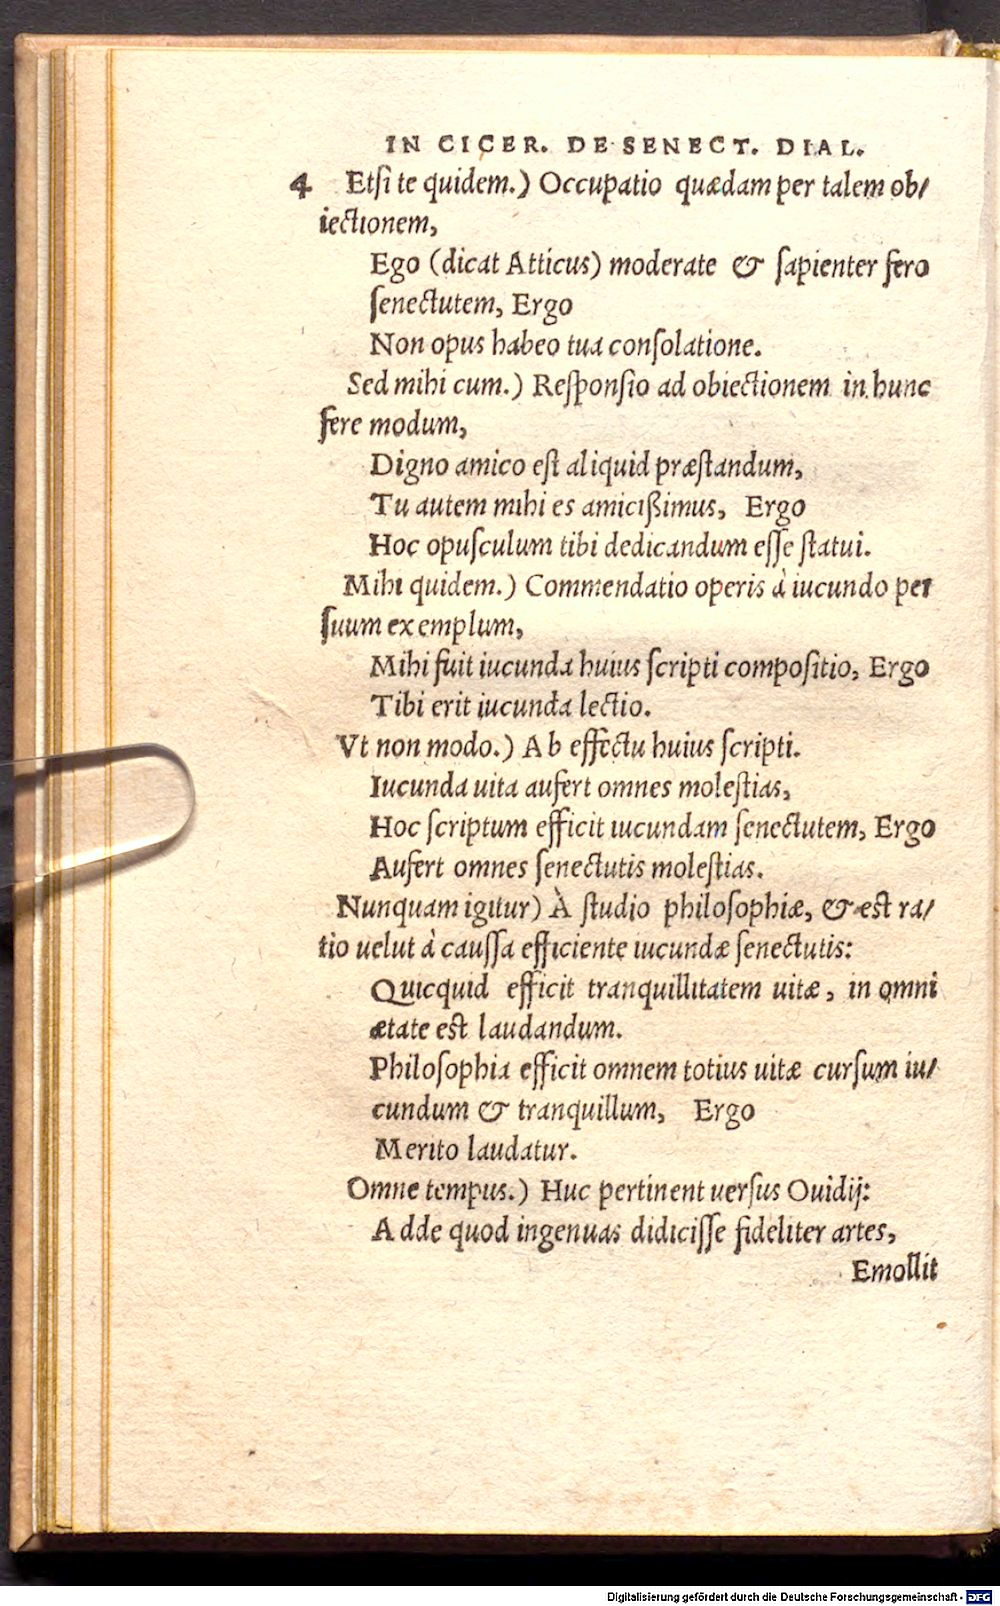 IN CICER. DE SENECT. DIAL.
4 Etsi te quidem.) Occupatio quædam per talem ob/
iectionem,
Ego (dicat Atticus) moderate & sapienter fero
senectutem, Ergo
Non opus habeo tua consolatione.
Sed mihi cum.) Responsio ad obiectionem in hunc
fere modum,
Digno amico est aliquid præstandum,
Tu autem mihi es amicißimus, Ergo
Hoc opusculum tibi dedicandum esse statui.
Mihi quidem.) Commendatio operis à iucundo per
suum exemplum,
Mihi fuit iucunda huius scripti compositio, Ergo
Tibi erit iucunda lectio.
Vt non modo.) Ab effectu huius scripti.
Iucunda uita aufert omnes molestias,
Hoc scriptum efficit iucundam senectutem, Ergo
Aufert omnes senectutis molestias.
Nunquam igitur) À studio philosophiæ, & est ra/
tio uelut à caussa efficiente iucundæ senectutis:
Quicquid efficit tranquillitatem uitæ, in omni
ætate est laudandum.
Philosophia efficit omnem totius uitæ cursum iu/
cundum & tranquillum, Ergo
Merito laudatur.
Omne tempus.) Huc pertinent uersus Ouidij:
Adde quod ingenuas didicisse fideliter artes,
Emollit
Digitalisierung gefördert durch die Deutsche Forschungsgemeinschaft - DFG